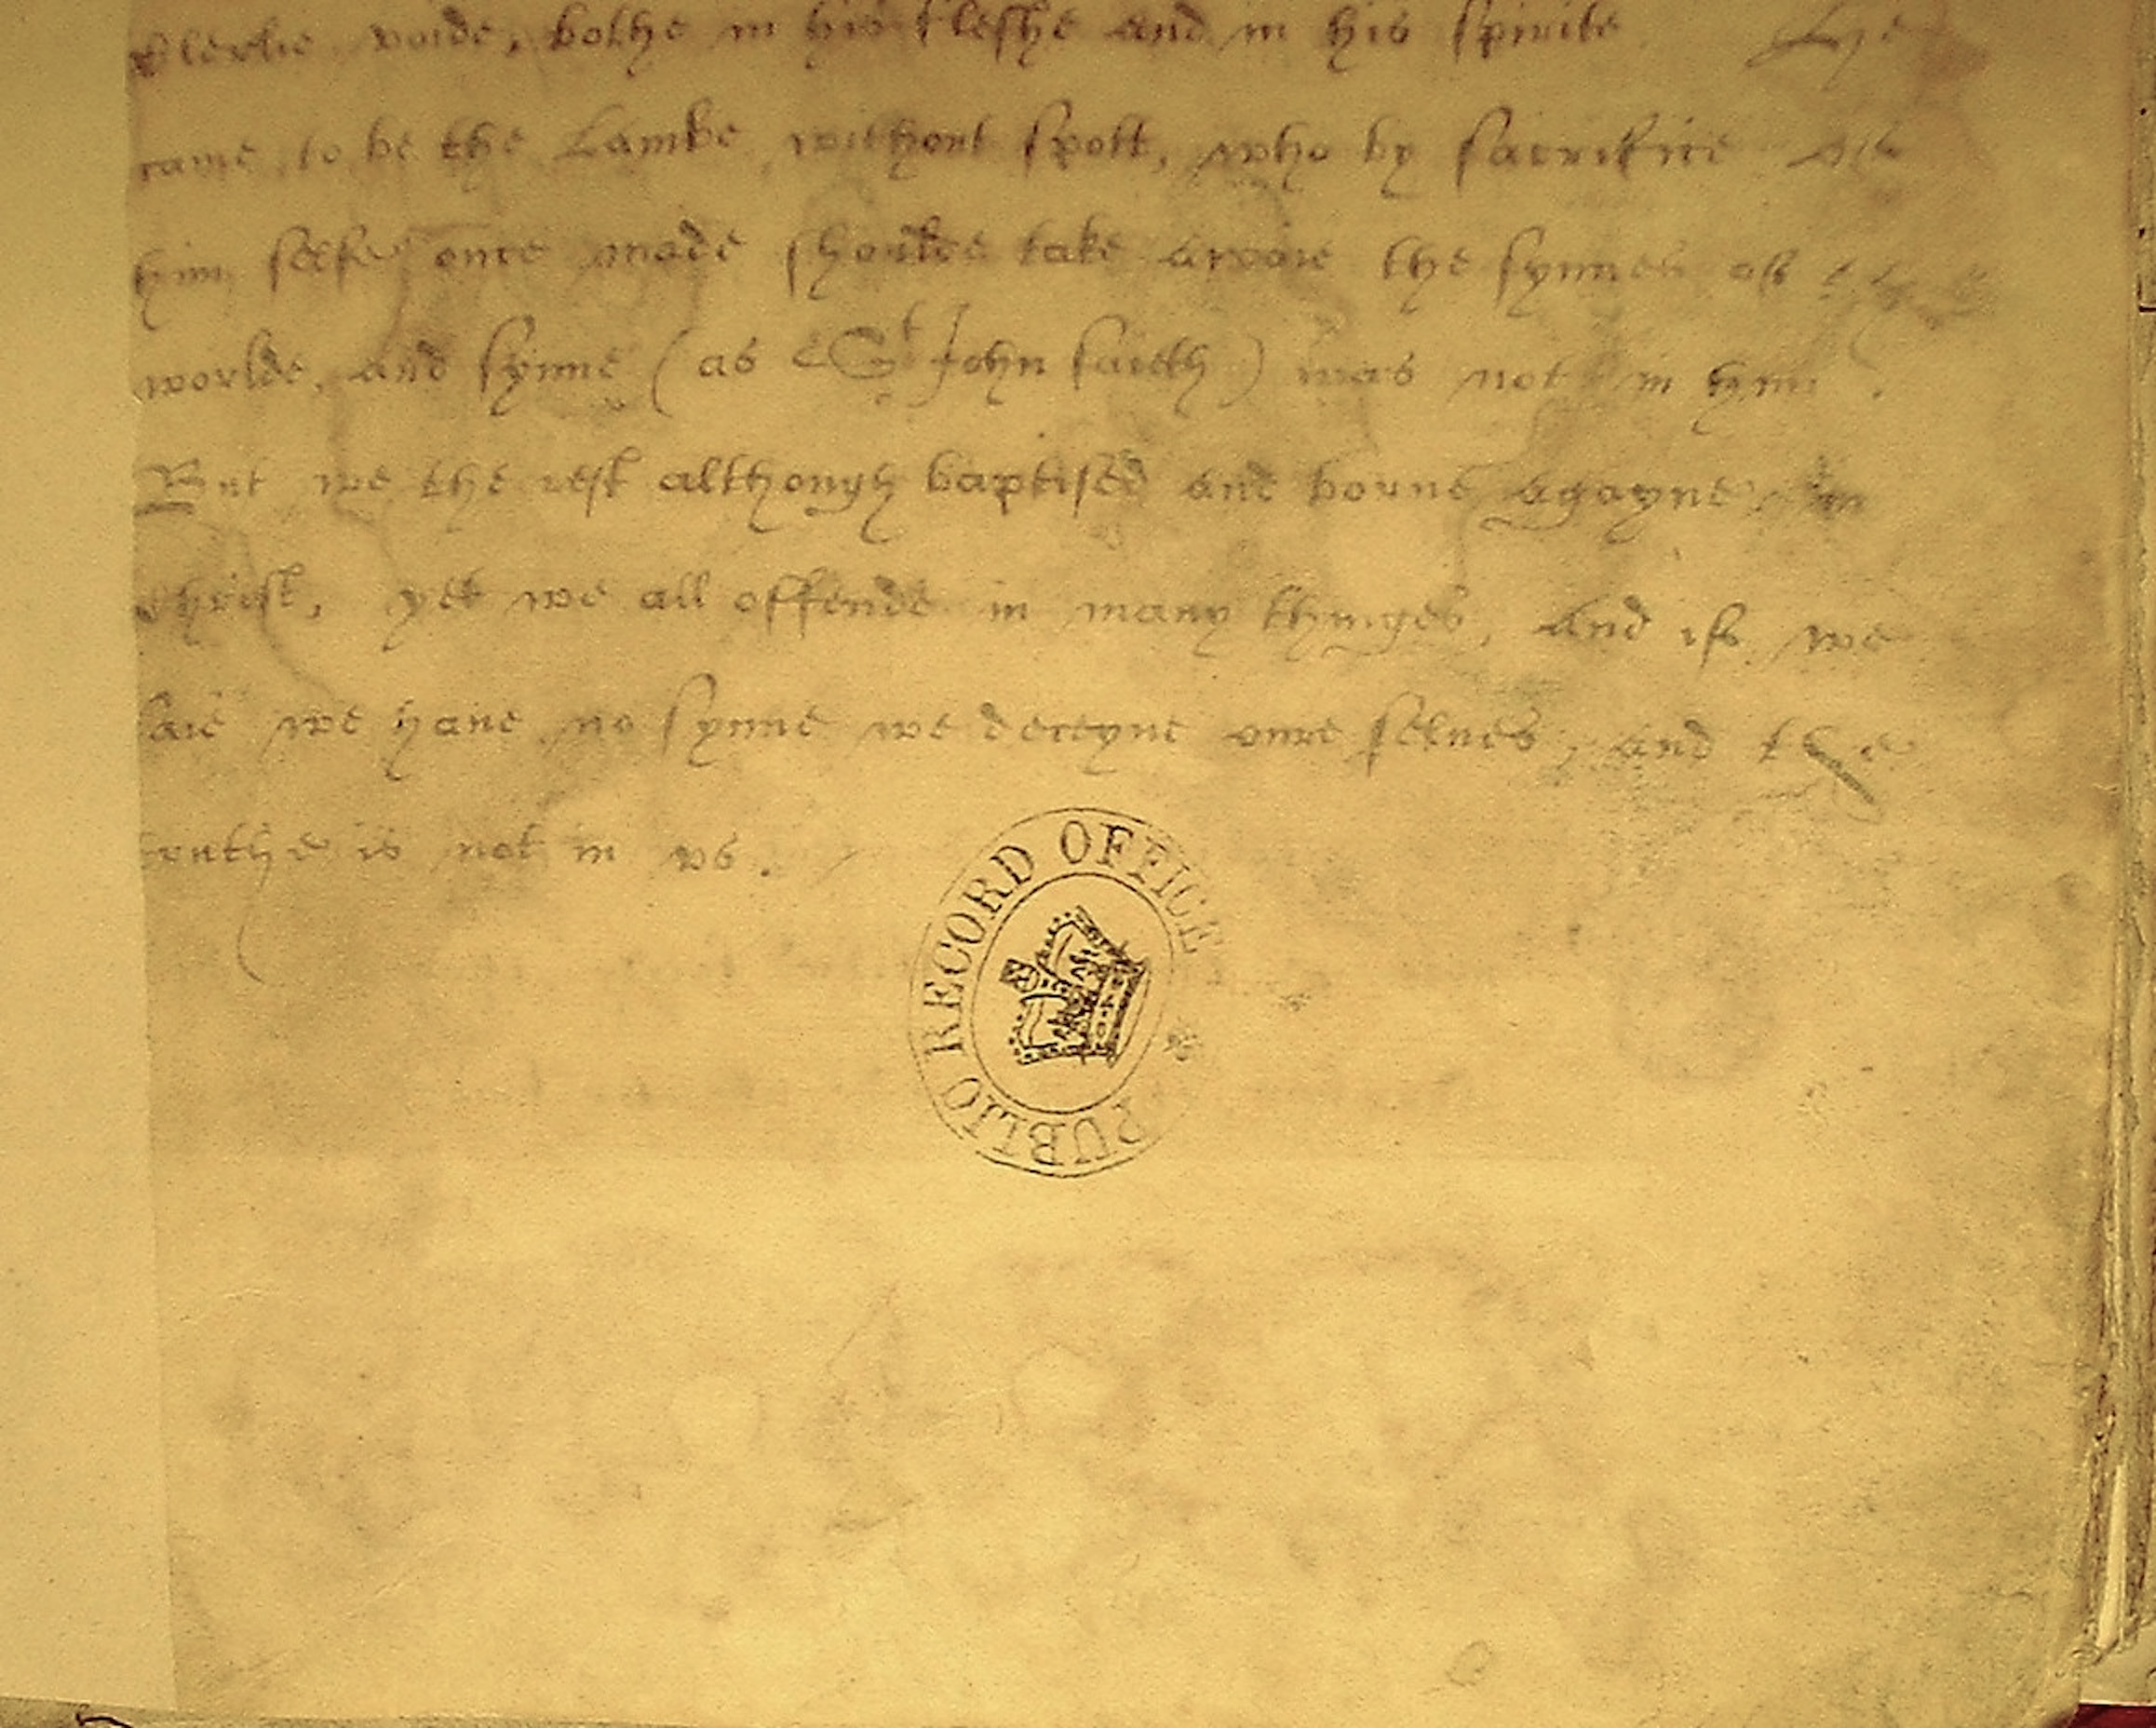 clerlie voide, bothe in his fleshe and in his spirite He
came to be the Lambe without spott, who by sacrifice of
him selfe once made shoulde take awaie the synnes of the
worlde, and synne (as St John saieth) was not in hym.
But we the rest althoughe baptised and borne agayne in
Christ, yet we all offende in many thinges, and if we
saie we haue no synne we deceyue oure selues, and the
truthe is not in vs.
PUBLIC RECORD OFFICE